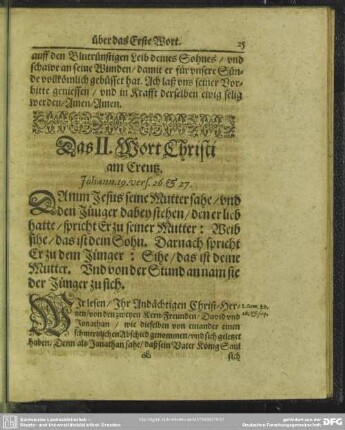 über das Erste Wort. 25
auff den Blutrünstigen Leib deines Sohnes / vnd
schawe an seine Wunden / damit er für vnsere Sün-
de vollkömlich gebüsset hat. Ach laß vns seiner Vor-
bitte geniessen / vnd in Krafft derselben ewig selig
werden / Amen / Amen.
Das II. Wort Christi
am Creutz.
Johann. 19. vers. 26 & 27.
DA nun Jesus seine Mutter sahe / vnd
den Jünger dabey stehen / den er lieb
hatte / spricht Er zu seiner Mutter: Weib
sihe / das ist dein Sohn. Darnach spricht
Er zu dem Jünger: Sihe / das ist deine
Mutter. Vnd von der Stund an nam sie
der Jünger zu sich.
WIr lesen / Ihr Andächtigen Christ-Her-
tzen / von den zweyen Kern-Freunden / David vnd
Jonathan / wie dieselben von einander einen
schmertzlichen Abschied genommen / vnd sich geletzet
haben. Denn als Jonathan sahe / daß sein Vater König Saul
sich